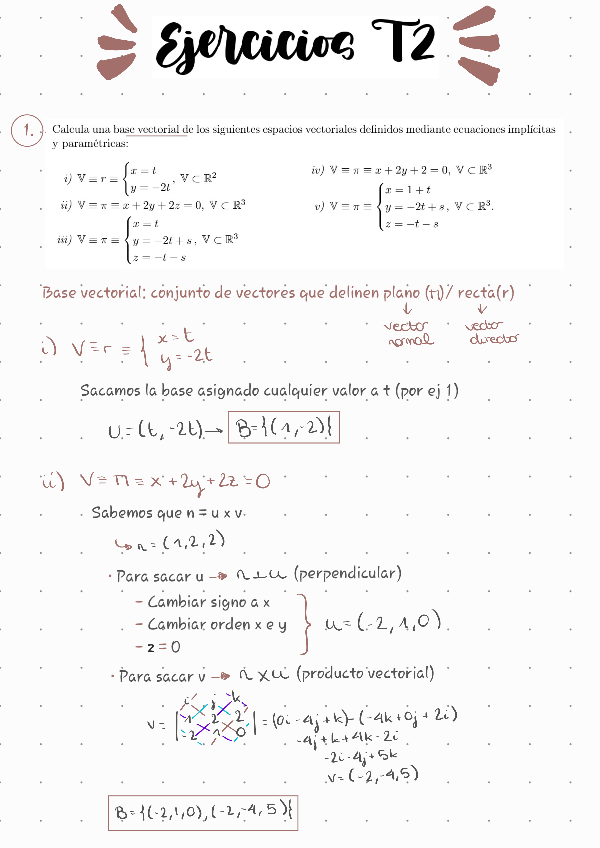 Ejercicios T2
1. Calcula una base vectorial de los siguientes espacios vectoriales definidos mediante ecuaciones implícitas
y paramétricas:
i) 𝕍 ≡ r ≡ { x = t
y = −2t , 𝕍 ⊂ ℝ²
ii) 𝕍 ≡ π ≡ x + 2y + 2z = 0, 𝕍 ⊂ ℝ³
iii) 𝕍 ≡ π ≡ { x = t
y = −2t + s , 𝕍 ⊂ ℝ³
z = −t − s
iv) 𝕍 ≡ π ≡ x + 2y + 2 = 0, 𝕍 ⊂ ℝ³
v) 𝕍 ≡ π ≡ { x = 1 + t
y = −2t + s , 𝕍 ⊂ ℝ³.
z = −t − s
Base vectorial: conjunto de vectores que delinen plano (π)/ recta(r)
↓ ↓
vector vector
normal director
i) V=r ≡ { x=t
y=-2t
Sacamos la base asignado cualquier valor a t (por ej 1)
U=(t,-2t)→ B={(1,-2)}
ii) V≡π≡x+2y+2z=0
Sabemos que n = u x v
↳ n=(1,2,2)
· Para sacar u → n⊥u (perpendicular)
- Cambiar signo a x
- Cambiar orden x e y } u=(-2,1,0)
- z = 0
· Para sacar v → n x u (producto vectorial)
i j k
v= | 1 2 2 | =(0i-4j+k)-(-4k+0j+2i)
-2 1 0
-4j+k+4k-2i
-2i-4j+5k
v=(-2,-4,5)
B={(-2,1,0),(-2,-4,5)}